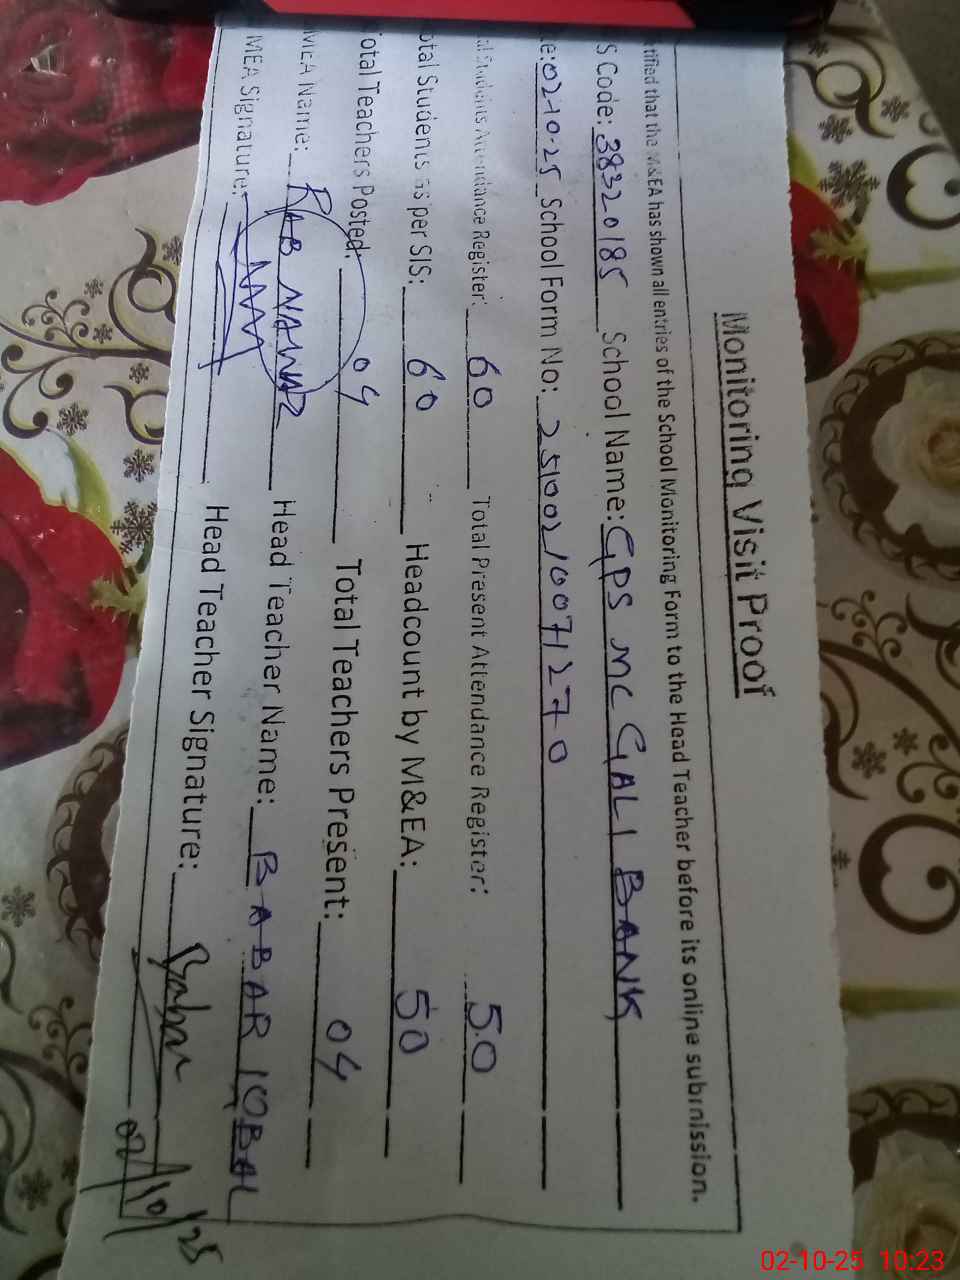 Monitoring Visit Proof
tified that the M&EA has shown all entries of the School Monitoring Form to the Head Teacher before its online submission.
S Code: 38320185 School Name: GPS MC GALI BANK
te: 02-10-25 School Form No: 25100210071270
al Students Attendance Register: 60 Total Present Attendance Register: 50
otal Students as per SIS: 60 Headcount by M&EA: 50
otal Teachers Posted: 04 Total Teachers Present: 04
MEA Name: RAB NAWAZ Head Teacher Name: BABAR IQBAL
MEA Signature: Head Teacher Signature:
02/10/25
02-10-25 10:23